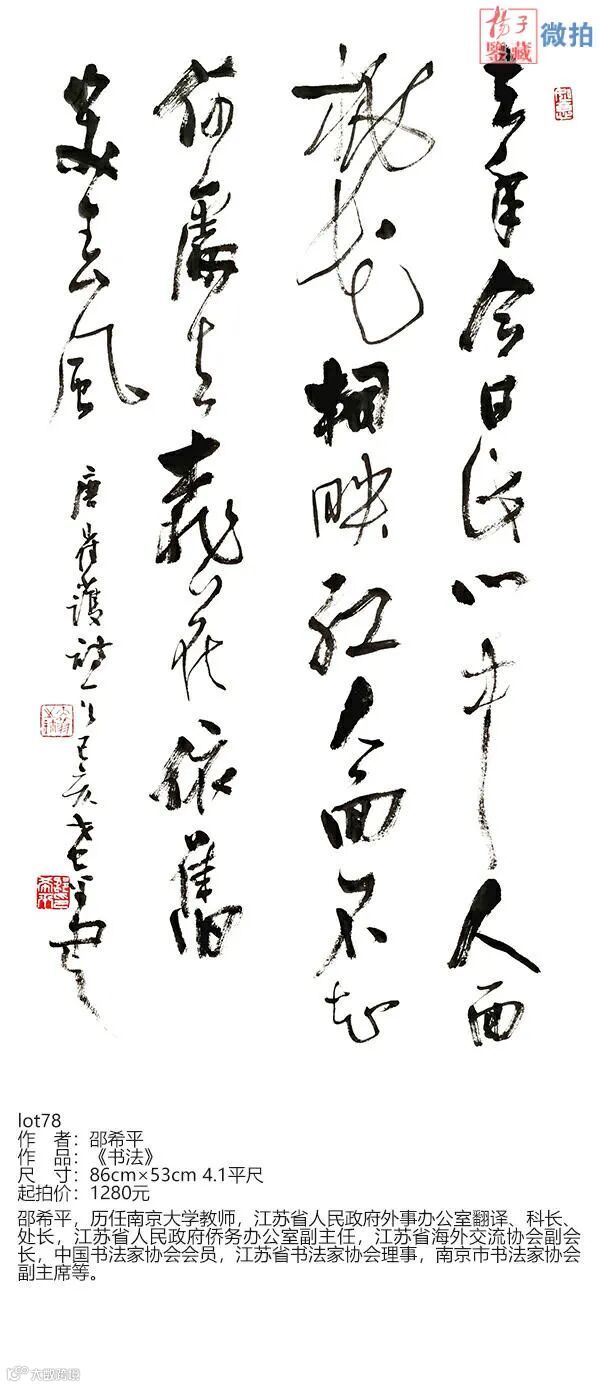 楊子
鑒藏
微拍
去年今日此門中人面
桃花相映紅人面不知
何處去桃花依舊
笑春風
唐崔護詩 己亥
lot78
作 者：邵希平
作 品：《书法》
尺 寸：86cm×53cm 4.1平尺
起拍价：1280元
邵希平，历任南京大学教师，江苏省人民政府外事办公室翻译、科长、
处长，江苏省人民政府侨务办公室副主任，江苏省海外交流协会副会
长，中国书法家协会会员，江苏省书法家协会理事，南京市书法家协会
副主席等。
大数跨境